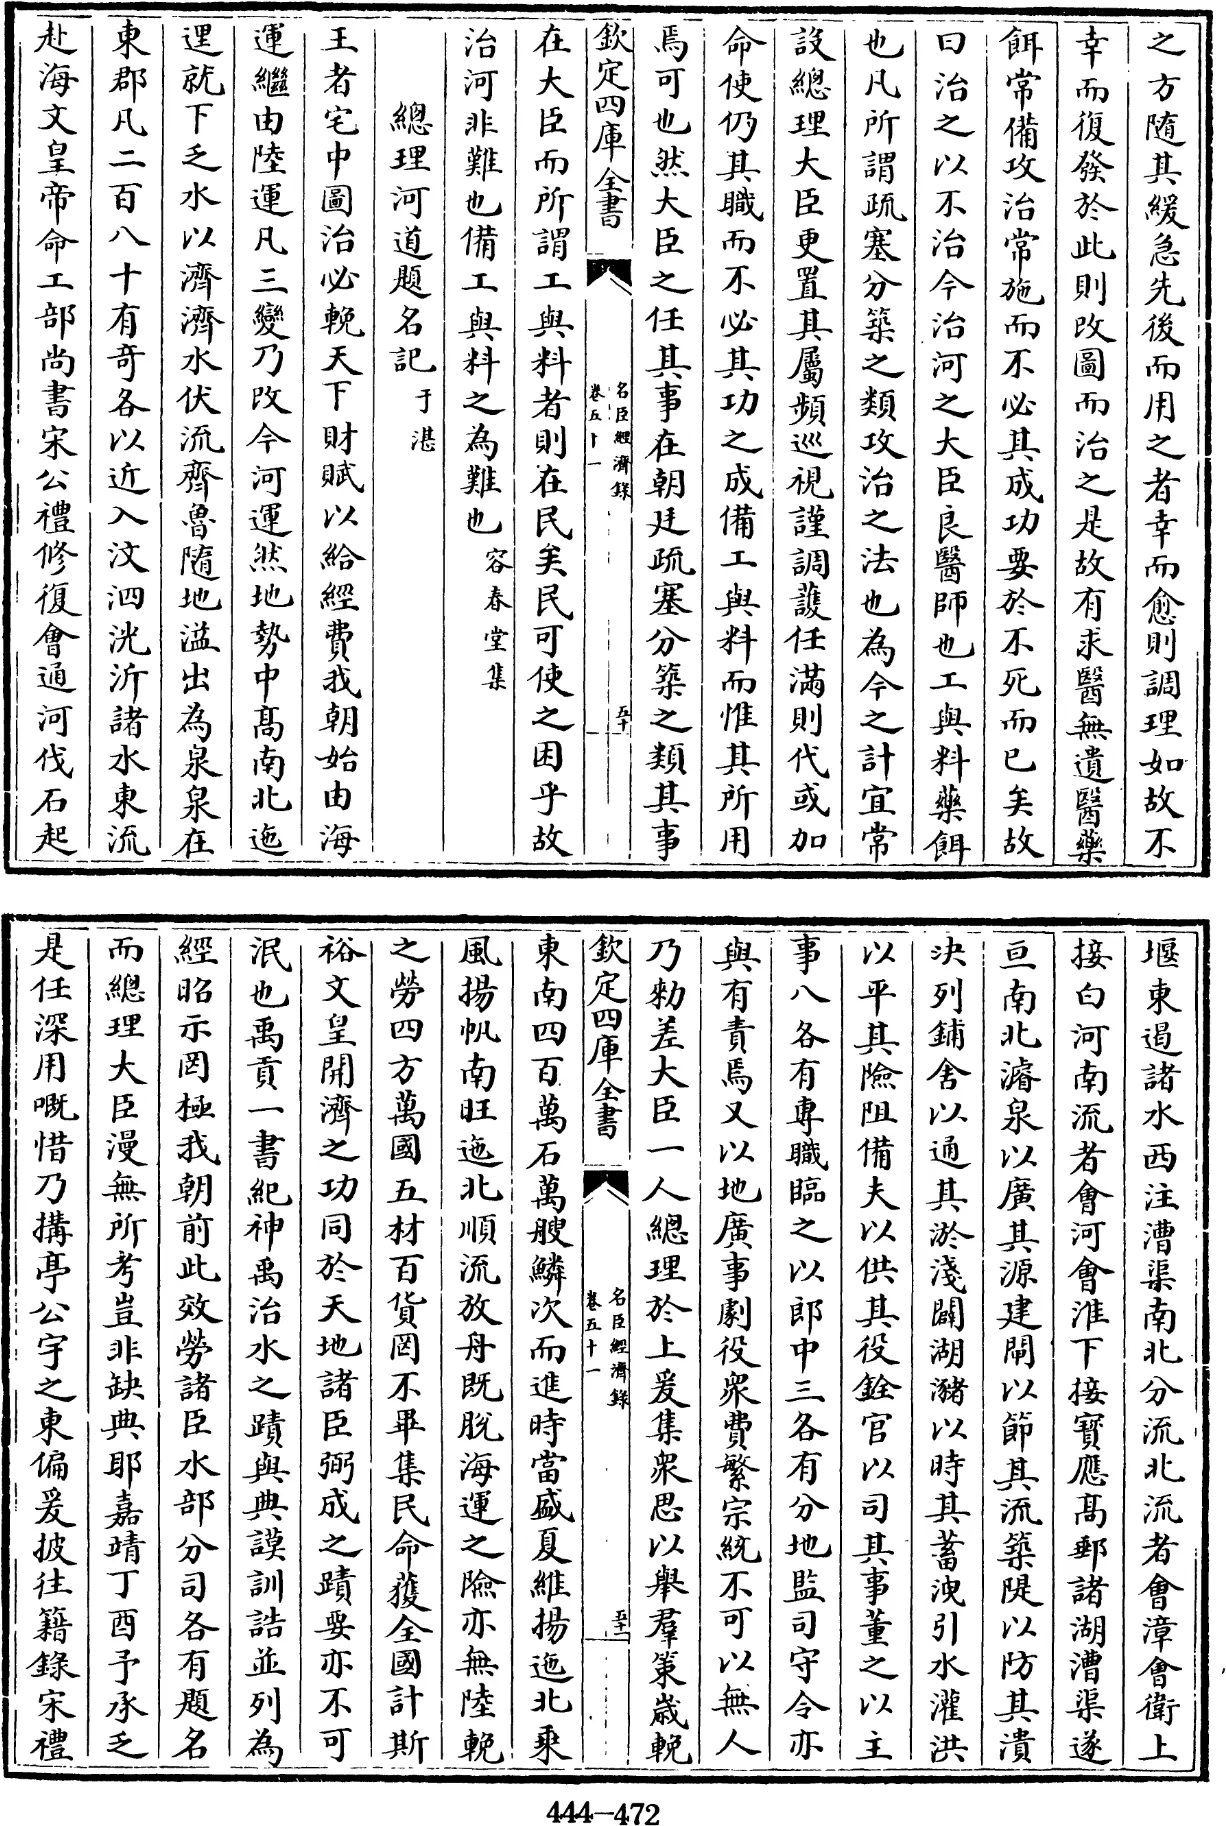 之方隨其緩急先後而用之者幸而愈則調理如故不
幸而復發於此則改圖而治之是故有求醫無遺醫藥
餌常備攻治常施而不必其成功要於不死而已矣故
曰治之以不治今治河之大臣良醫師也工與料藥餌
也凡所謂疏塞分築之類攻治之法也為今之計宜常
設總理大臣更置其屬頻巡視謹調護任滿則代或加
命使仍其職而不必其功之成備工與料而惟其所用
焉可也然大臣之任其事在朝廷疏塞分築之類其事
欽定四庫全書
名臣經濟錄
卷五十一
五十
在大臣而所謂工與料者則在民矣民可使之困乎故
治河非難也備工與料之為難也容春堂集
總理河道題名記 于湛
王者宅中圖治必輓天下財賦以給經費我朝始由海
運繼由陸運凡三變乃改今河運然地勢中髙南北迤
逕就下乏水以濟濟水伏流齊魯隨地溢出為泉泉在
東郡凡二百八十有奇各以近入汶泗洸沂諸水東流
赴海文皇帝命工部尚書宋公禮修復會通河伐石起
堰東遏諸水西注漕渠南北分流北流者會漳會衛上
接白河南流者會河會淮下接寳應髙郵諸湖漕渠遂
亘南北濬泉以廣其源建閘以節其流築隄以防其潰
決列鋪舍以通其淤淺闢湖瀦以時其蓄洩引水灌洪
以平其險阻備夫以供其役銓官以司其事董之以主
事八各有專職臨之以郎中三各有分地監司守令亦
與有責焉又以地廣事劇役衆費繁宗統不可以無人
乃勅差大臣一人總理於上爰集衆思以舉羣策嵗輓
欽定四庫全書
名臣經濟錄
卷五十一
五十一
東南四百萬石萬艘鱗次而進時當盛夏維揚迤北乗
風揚帆南旺迤北順流放舟既脫海運之險亦無陸輓
之勞四方萬國五材百貨罔不畢集民命獲全國計斯
裕文皇開濟之功同於天地諸臣弼成之蹟要亦不可
泯也禹貢一書紀神禹治水之蹟與典謨訓誥並列為
經昭示罔極我朝前此效勞諸臣水部分司各有題名
而總理大臣漫無所考豈非缺典耶嘉靖丁酉予承乏
是任深用嘅惜乃搆亭公宇之東偏爰披往籍錄宋禮
444-472